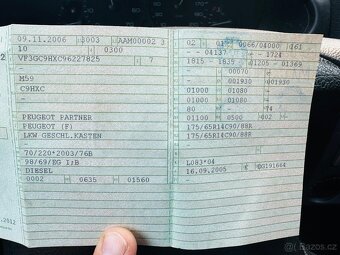 09.11.2006 3003 AAM00002 3
10 0300
VF3GC9HXC96227825 7
M59
C9HXC
PEUGEOT PARTNER
PEUGEOT (F)
LKW GESCHL.KASTEN
70/220*2003/76B
98/69/EG I;B
DIESEL
0002 0635 01560
02 0066/04000 161
04137 - 1724
1815 - 1835 01205 - 01369
00070
001930 001930
01000 01080
01000 01080
80 74
01100 0500 002
175/65R14C90/88R
175/65R14C90/88R
L083*04
16.09.2005 OG191664
bazos.cz